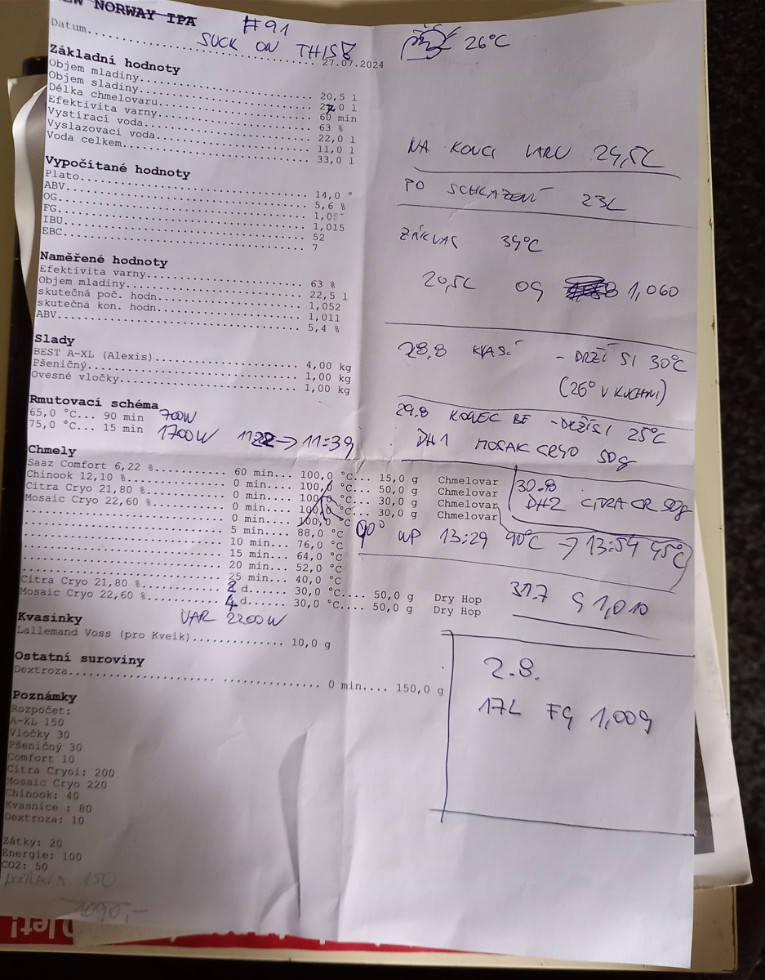 NEW NORWAY IPA #91
SUCK ON THIS!
Datum........ 27.07.2024
Základní hodnoty
Objem mladiny........ 20,5 l
Objem sladiny........ 27,0 l
Délka chmelovaru........ 60 min
Efektivita varny........ 63 %
Vystírací voda........ 22,0 l
Vyslazovací voda........ 11,0 l
Voda celkem........ 33,0 l
Vypočítané hodnoty
Plato........ 14,0 °
ABV........ 5,6 %
OG........
FG........ 1,015
IBU........ 52
EBC........ 7
Naměřené hodnoty
Efektivita varny........ 63 %
Objem mladiny........ 22,5 l
skutečná poč. hodn........ 1,052
skutečná kon. hodn........ 1,011
ABV........ 5,4 %
Slady
BEST A-XL (Alexis)........ 4,00 kg
Pšeničný........ 1,00 kg
Ovesné vločky........ 1,00 kg
Rmutovací schéma
65,0 °C... 90 min 700W
75,0 °C... 15 min 1700W 1122 → 11:39
Chmely
Saaz Comfort 6,22 %........ 60 min... 100,0 °C... 15,0 g Chmelovar
Chinook 12,10 %........ 0 min... 100,0 °C... 50,0 g Chmelovar
Citra Cryo 21,80 %........ 0 min... 100,0 °C... 30,0 g Chmelovar
Mosaic Cryo 22,60 %........ 0 min... 100,0 °C... 30,0 g Chmelovar
........ 0 min... 100,0 °C 90°
........ 5 min... 88,0 °C
........ 10 min... 76,0 °C
........ 15 min... 64,0 °C
........ 20 min... 52,0 °C
........ 25 min... 40,0 °C
Citra Cryo 21,80 %........ 2 d...... 30,0 °C.... 50,0 g Dry Hop
Mosaic Cryo 22,60 %........ 4 d...... 30,0 °C.... 50,0 g Dry Hop
Kvasinky VAR 2200W
Lallemand Voss (pro Kveik)........ 10,0 g
Ostatní suroviny
Dextroza........ 0 min.... 150,0 g
Poznámky
Rozpočet:
A-XL 150
Vločky 30
Pšeničný 30
Comfort 10
Citra Cryoi: 200
Mosaic Cryo 220
Chinook: 40
Kvasnice : 80
Dextroza: 10
Zátky: 20
Energie: 100
CO2: 50
DOPRAVA 150
26°C
NA KONCI VARU 24,5L
PO SCHLAZENÍ 23L
ZÁKVAS 39°C
20,5L OG 1,060
28.8 KVASÍ - DRŽÍ SI 30°C
(26° V KUCHYNI)
29.8 KONEC BE - DRŽÍ SI 25°C
DH1 MOSAIK CRYO 50g
30.8
DH2 CITRA CR 50g
WP 13:29 90°C → 13:54 45°C
31.7 G 1,010
2.8.
17L FG 1,009